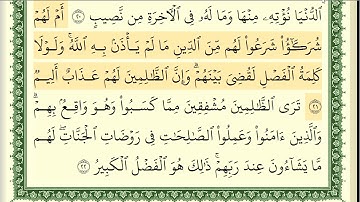 ٱلدُّنْيَا نُؤْتِهِۦ مِنْهَا وَمَا لَهُۥ فِى ٱلْءَاخِرَةِ مِن نَّصِيبٍ ٢٠ أَمْ لَهُمْ
شُرَكَٰٓؤُا۟ شَرَعُوا۟ لَهُم مِّنَ ٱلدِّينِ مَا لَمْ يَأْذَنۢ بِهِ ٱللَّهُ ۚ وَلَوْلَا
كَلِمَةُ ٱلْفَصْلِ لَقُضِىَ بَيْنَهُمْ ۗ وَإِنَّ ٱلظَّٰلِمِينَ لَهُمْ عَذَابٌ أَلِيمٌ
٢١ تَرَى ٱلظَّٰلِمِينَ مُشْفِقِينَ مِمَّا كَسَبُوا۟ وَهُوَ وَاقِعٌۢ بِهِمْ ۗ
وَٱلَّذِينَ ءَامَنُوا۟ وَعَمِلُوا۟ ٱلصَّٰلِحَٰتِ فِى رَوْضَاتِ ٱلْجَنَّاتِ ۖ لَهُم
مَّا يَشَآءُونَ عِندَ رَبِّهِمْ ۚ ذَٰلِكَ هُوَ ٱلْفَضْلُ ٱلْكَبِيرُ ٢٢